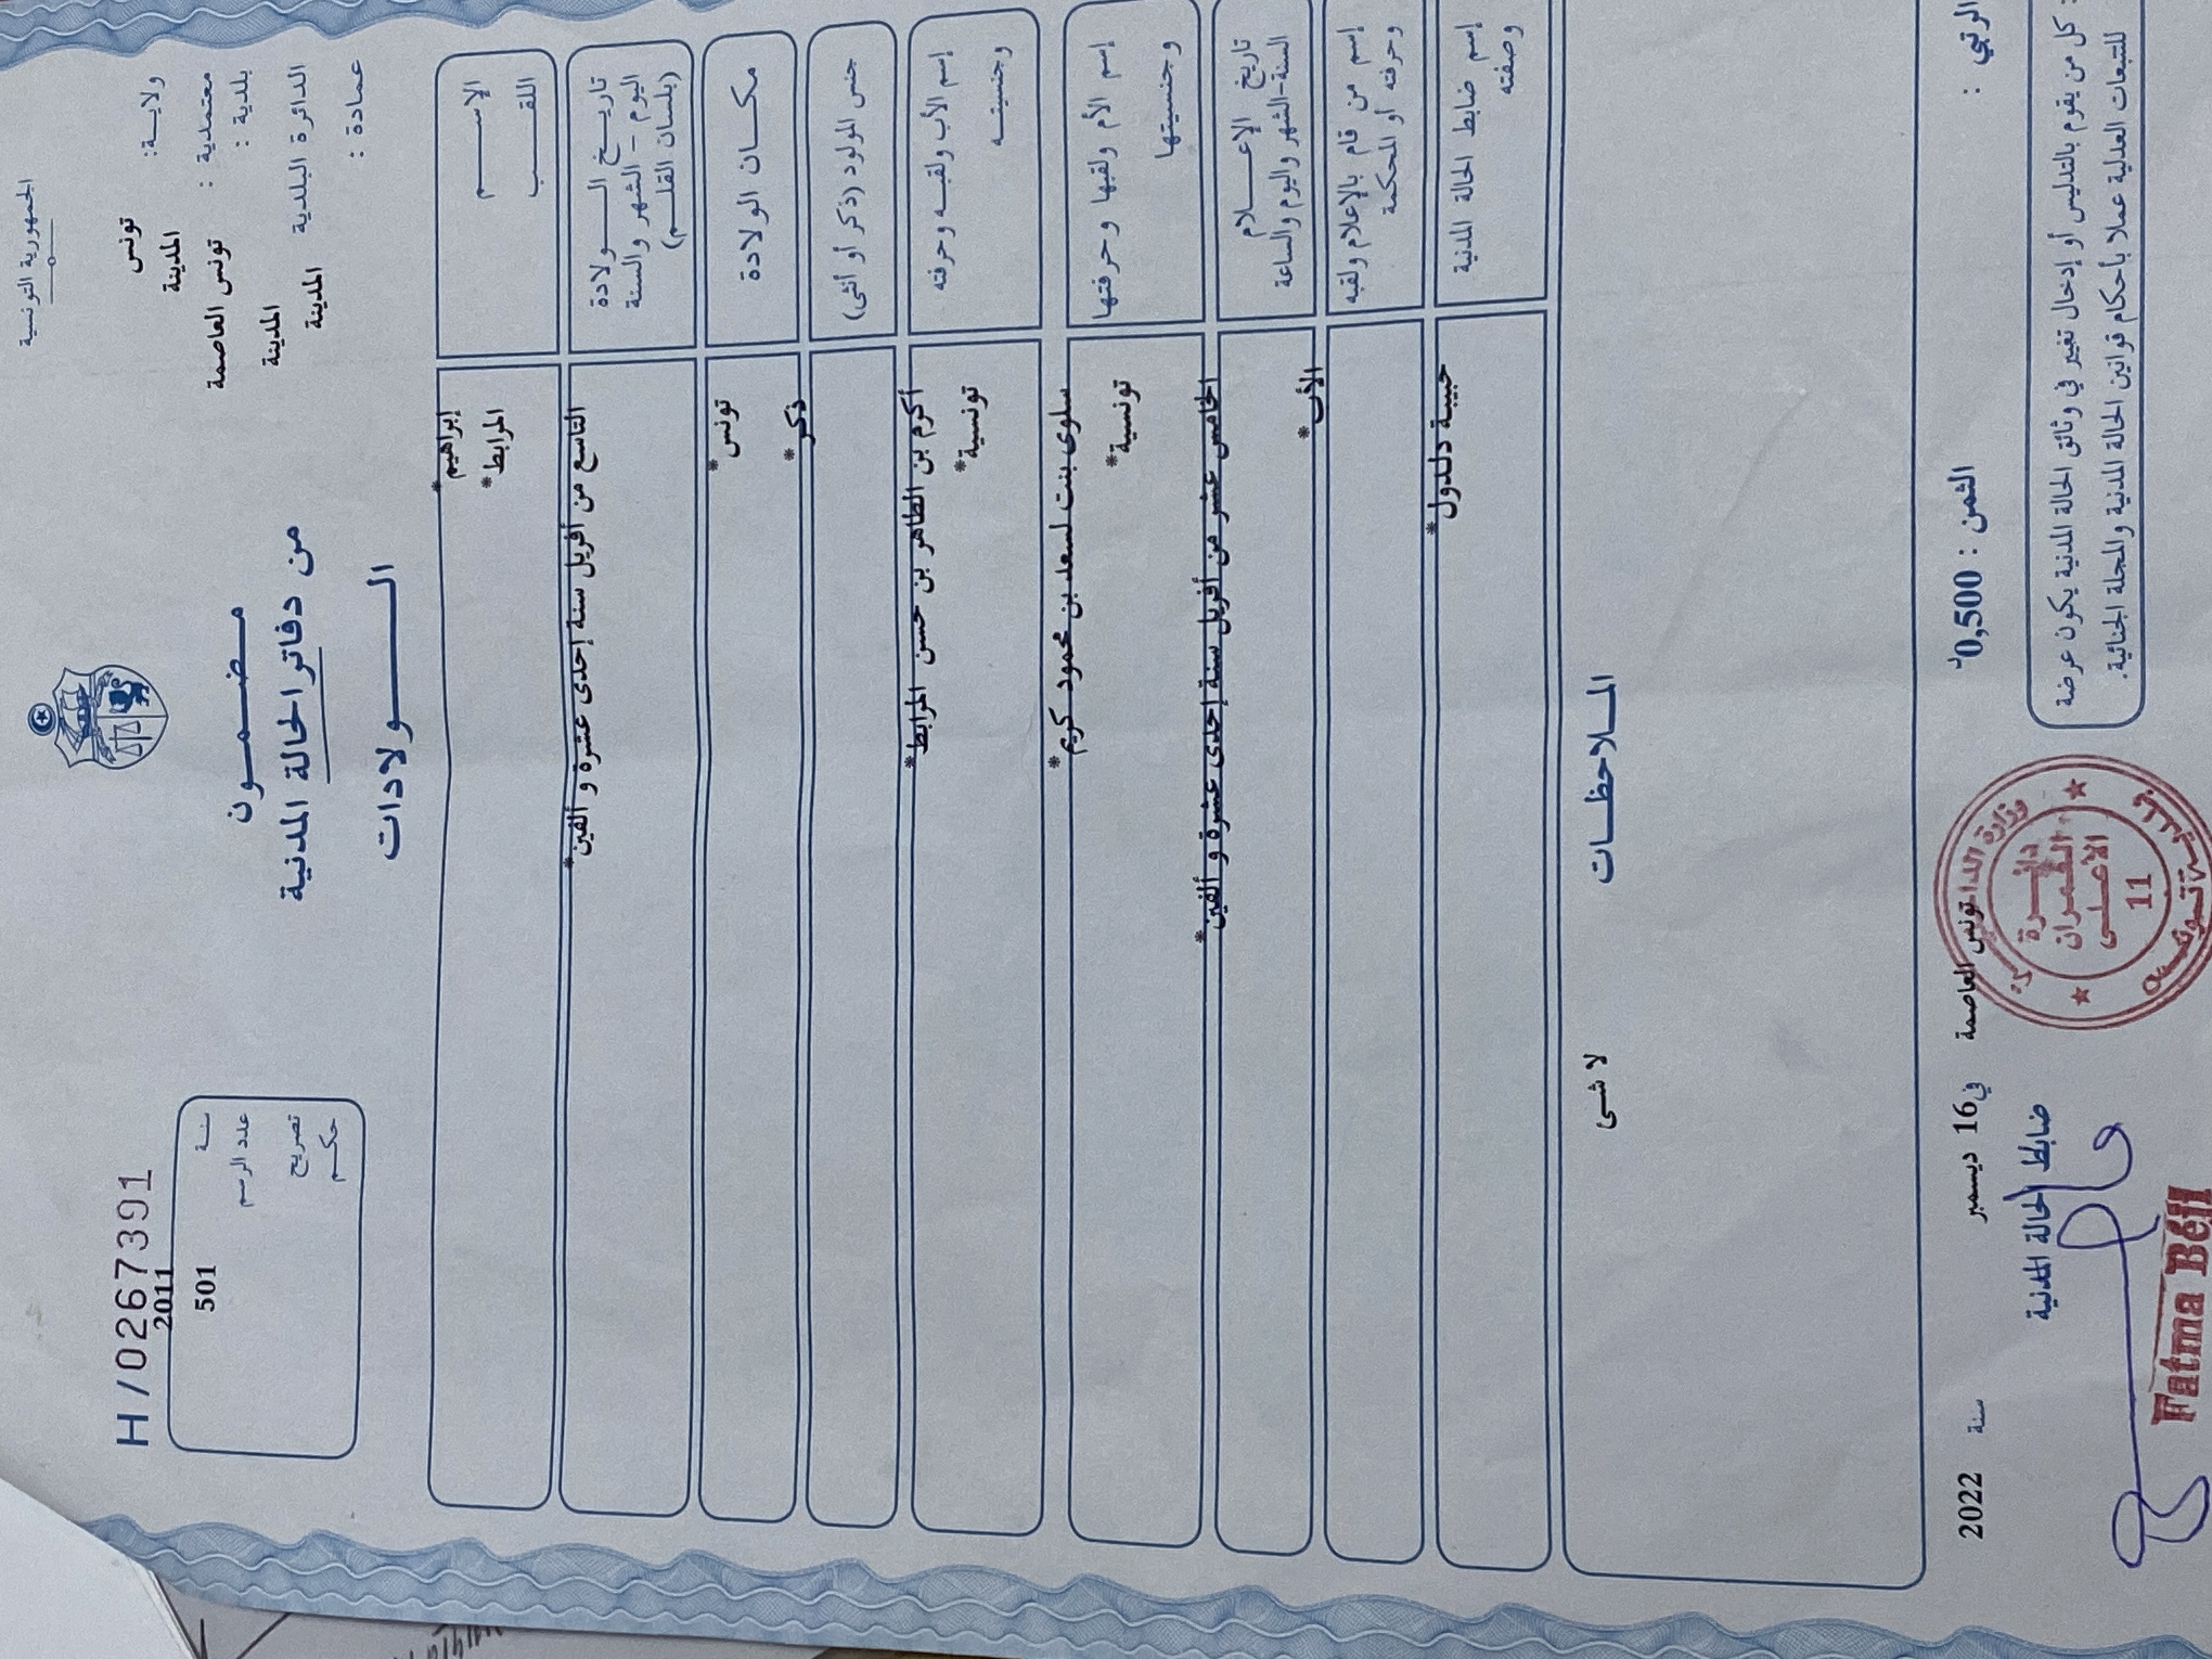 الجمهورية التونسية
H/02673991
ولايـــة: تونس
2011 سنــة
المدينة
معتمدية : تونس العاصمة
501 عدد الرسم
بلدية : المدينة
تصريح
الدائرة البلدية المدينة
حكـــم
عمادة :
مضـــمـــون
من دفاتر الحالة المدنية
الـــــولادات
الإســـــم
إبراهيم*
اللقـــــب
المرابط*
تاريـــخ الــــولادة
اليوم - الشهر والسنة
(بلسان القلـــم)
التاسع من أفريل سنة إحدى عشرة و ألفين*
مكـــان الولادة
تونس*
جنس المولود (ذكر أو أنثى)
ذكر*
إسم الأب ولقبـــه وحرفته
وجنسيتـــه
أكرم بن الطاهر بن حسن المرابط*
تونسية*
إسم الأم ولقبها وحرفتها
وجنسيتها
سلوى بنت لسعد بن محمود كريم*
تونسية*
تاريخ الإعــــلام
السنة-الشهر واليوم والساعة
الخامس عشر من أفريل سنة إحدى عشرة و ألفين*
إسم من قام بالإعلام ولقبه
وحرفته أو المحكمة
الأب*
إسم ضابط الحالة المدنية
وصفته
حبيبة دلدول*
المـــلاحظـــات
لا شى
الثمن : 0,500د
تونس العاصمة في 16 ديسمبر سنة 2022
ضابط الحالة المدنية
كل من يقوم بالتدليس أو إدخال تغيير في وثائق الحالة المدنية يكون عرضة
للتتبعات العدلية عملا بأحكام قوانين الحالة المدنية والمجلة الجنائية.
وزارة الداخلية
دائـــرة
العمران
الأعلى
11
بلدية تونس
Fatma Béji